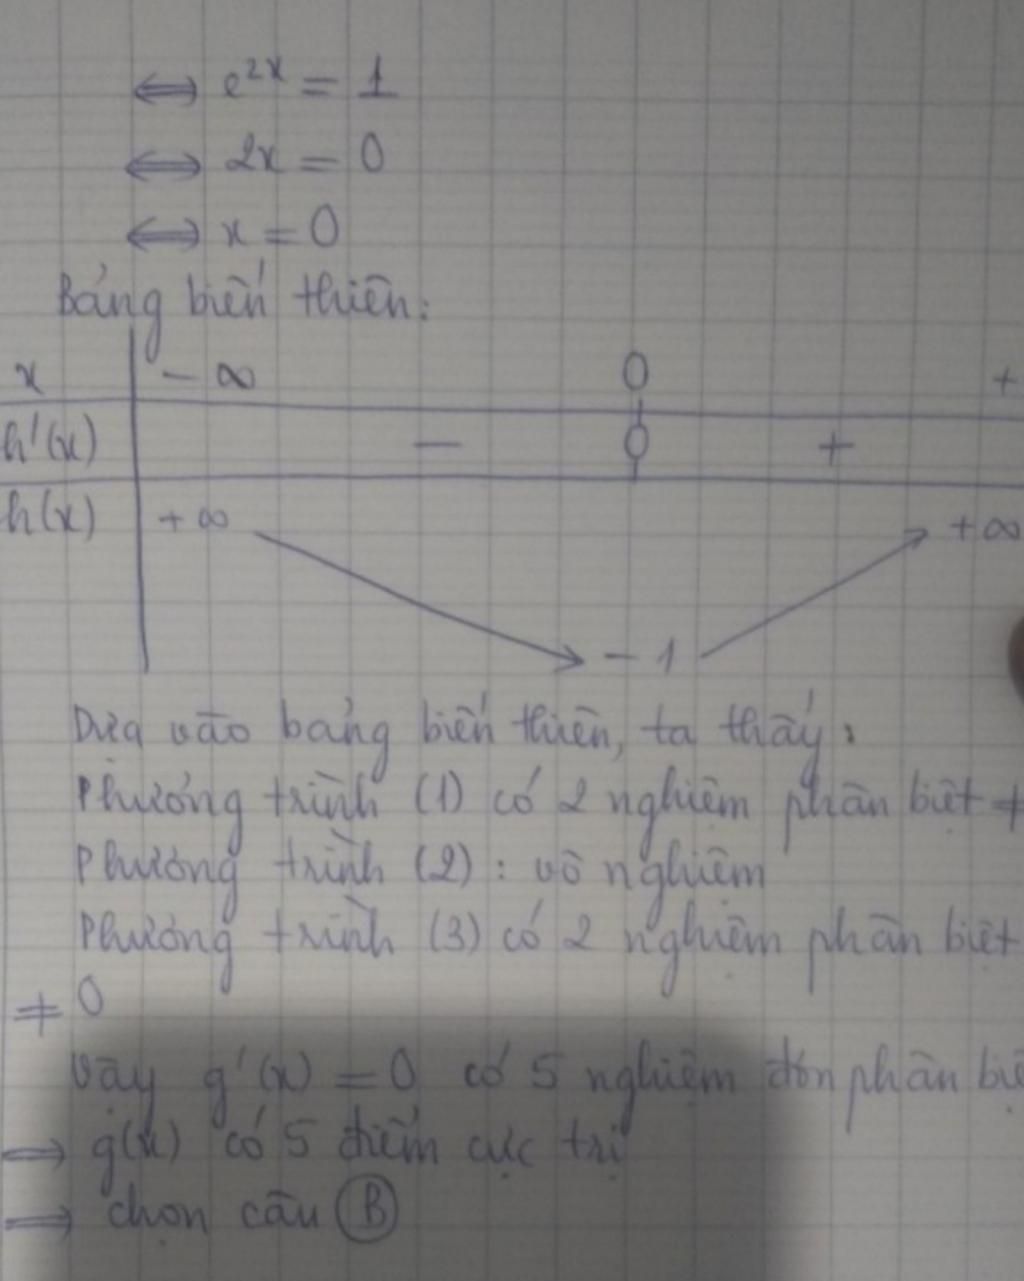 ⟺ e^{2x} = 1
⟺ 2x = 0
⟺ x = 0
Bảng biến thiên:
x - ∞ 0 +
h'(x) - 0 +
h(x) +∞ +∞
- 1
Dựa vào bảng biến thiên, ta thấy:
Phương trình (1) có 2 nghiệm phân biệt ≠
Phương trình (2): vô nghiệm
Phương trình (3) có 2 nghiệm phân biệt
≠ 0
Vậy g'(x) = 0 có 5 nghiệm đơn phân biệ
⟹ g(x) có 5 điểm cực trị
⟹ chọn câu B